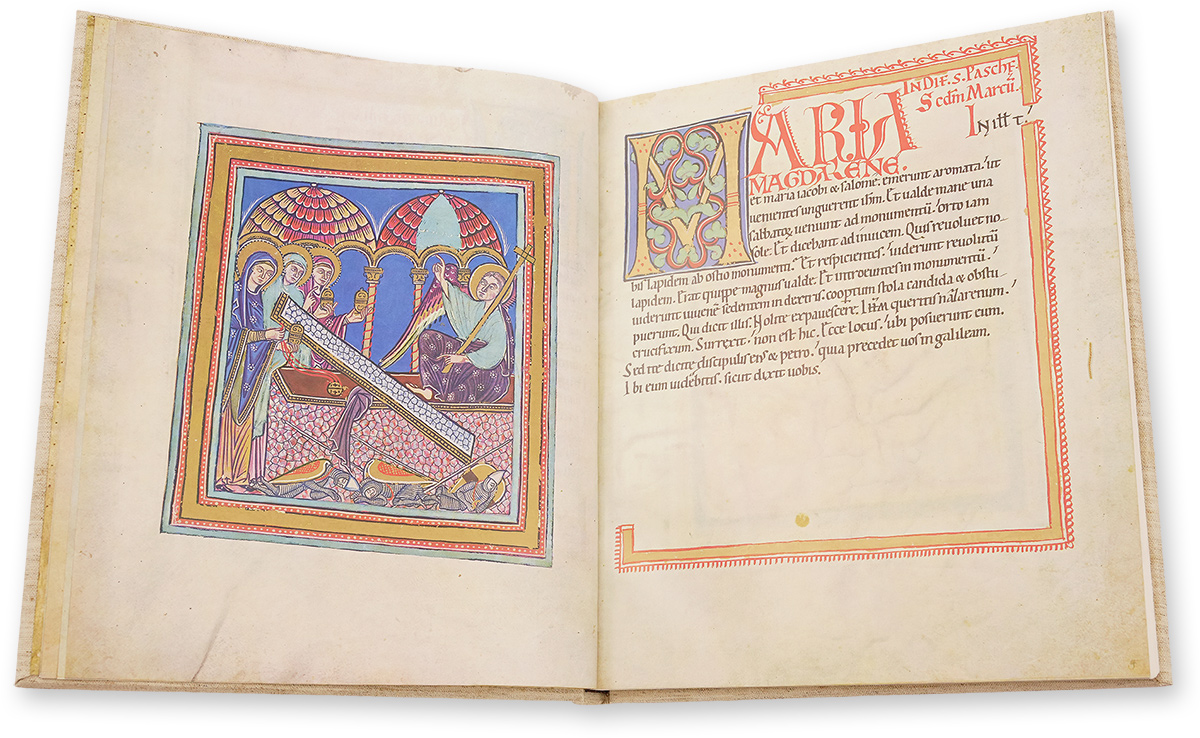 IN DIE. S. PASCHE.
Sedm Marcū.
IN illt̄.
MARIA
MAGDALENE.
et maria iacobi & salome. emerunt aromata. ut
uenientes unguerent ihm. Et ualde mane una
sabbatoꝝ ueniunt ad monumentū. orto iam
sole. Et dicebant ad inuicem. Quis reuoluet no-
bis lapidem ab ostio monumenti. Et respicientes. uiderunt reuolutū
lapidem. Erat quippe magnus ualde. Et introeuntes in monumentū.
uiderunt iuuenē sedentem in dextris. coopertum stola candida & obstu-
puerunt. Qui dicit illis. Nolite expauescere. Ihm queritis nazarenum.
crucifixum. Surrexit. non est hic. Ecce locus. ubi posuerunt eum.
Sed ite dicite discipulis eius & petro. quia precedet uos in galileam.
Ibi eum uidebitis. sicut dixit uobis.